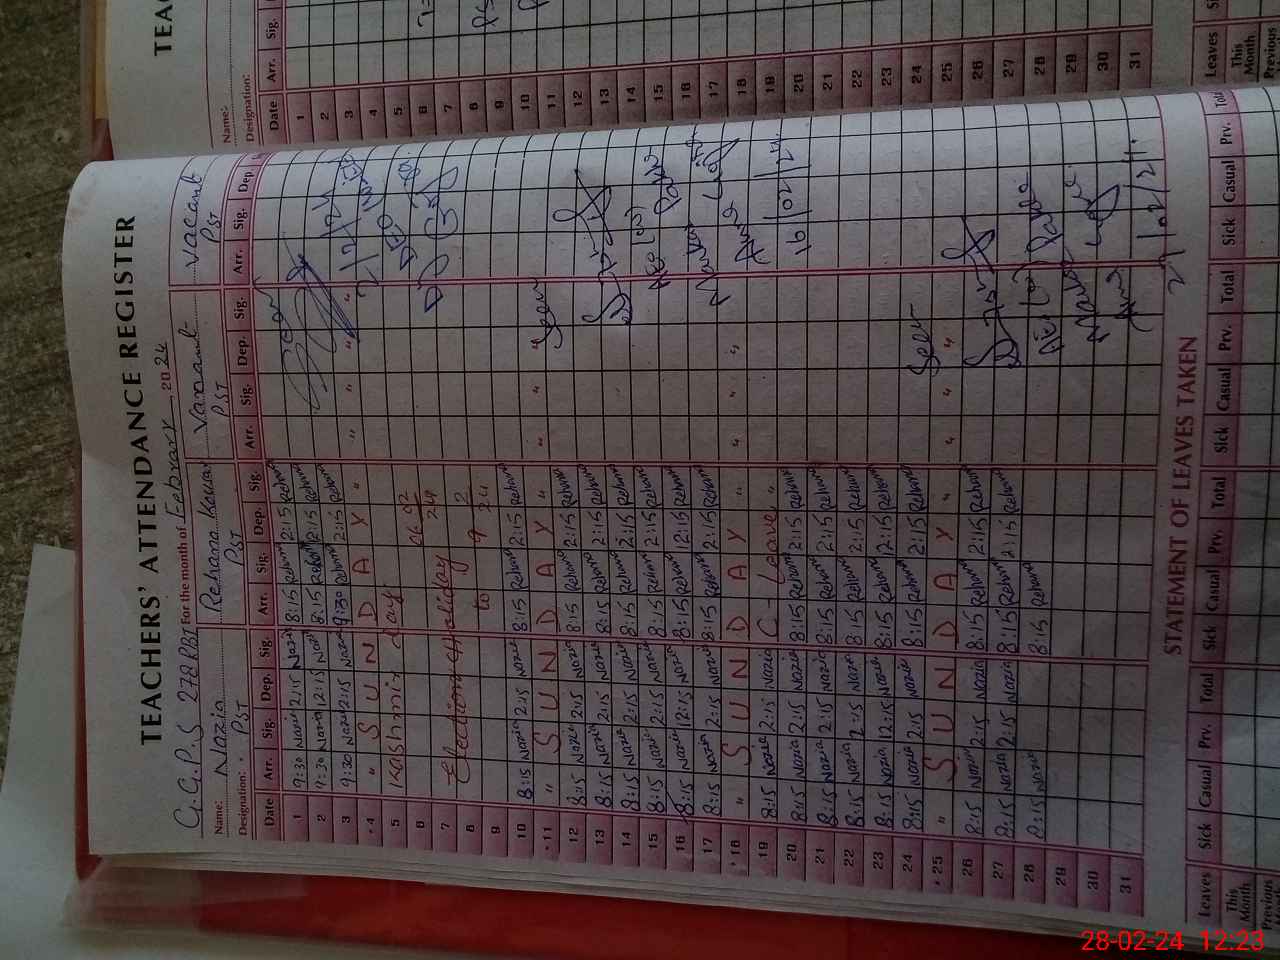 TEACHERS' ATTENDANCE REGISTER
G.G.P.S 278 RB For the month of Febrary 2024
Name: Nazia Rehana Kousar Vanamt Vacant
Designation: PST PST PST PST
Date Arr. Sig. Dep. Sig. Arr. Sig. Dep. Sig. Arr. Sig. Dep. Sig. Arr. Sig. Dep.
1 9:30 Nazia 2:15 Nazia 8:15 Rehana 2:15 Rehana
2 9:30 Nazia 12:15 Nazia 8:15 Rehana 12:15 Rehana
3 9:30 Nazia 2:15 Nazia 9:30 Rehana 2:15 Rehana
4 " S U N D A Y " " " " "
5 Kashmir day
6
7 Election Holiday 06 2/24
8 to 9 2/24
9
10 8:15 Nazia 2:15 Nazia 8:15 Rehana 2:15 Rehana
11 " S U N D A Y " " " " Seen
12 8:15 Nazia 2:15 Nazia 8:15 Rehana 2:15 Rehana
13 8:15 Nazia 2:15 Nazia 8:15 Rehana 2:15 Rehana
14 8:15 Nazia 2:15 Nazia 8:15 Rehana 2:15 Rehana
15 8:15 Nazia 2:15 Nazia 8:15 Rehana 2:15 Rehana
16 8:15 Nazia 12:15 Nazia 8:15 Rehana 12:15 Rehana
17 8:15 Nazia 2:15 Nazia 8:15 Rehana 2:15 Rehana
18 " S U N D A Y " " " "
19 8:15 Nazia 2:15 Nazia C- Leave "
20 8:15 Nazia 2:15 Nazia 8:15 Rehana 2:15 Rehana 16/02/24
21 8:15 Nazia 2:15 Nazia 8:15 Rehana 2:15 Rehana
22 8:15 Nazia 2:15 Nazia 8:15 Rehana 2:15 Rehana
23 8:15 Nazia 12:15 Nazia 8:15 Rehana 12:15 Rehana
24 8:15 Nazia 2:15 Nazia 8:15 Rehana 2:15 Rehana Seen
25 " S U N D A Y " " " "
26 8:15 Nazia 2:15 Nazia 8:15 Rehana 2:15 Rehana
27 8:15 Nazia 2:15 Nazia 8:15 Rehana 2:15 Rehana
28 8:15 Nazia 8:15 Rehana
29
30
31
STATEMENT OF LEAVES TAKEN
Leaves Sick Casual Prv. Total Sick Casual Prv. Total Sick Casual Prv. Total Sick Casual Prv. Total
This Month
Previous
TEA
Name:
Designation:
Date Arr. Sig.
1
2
3
4
5
6
7
8
9
10
11
12
13
14
15
16
17
18
19
20
21
22
23
24
25
26
27
28
29
30
31
Leaves
This Month
Previous
28-02-24 12:23